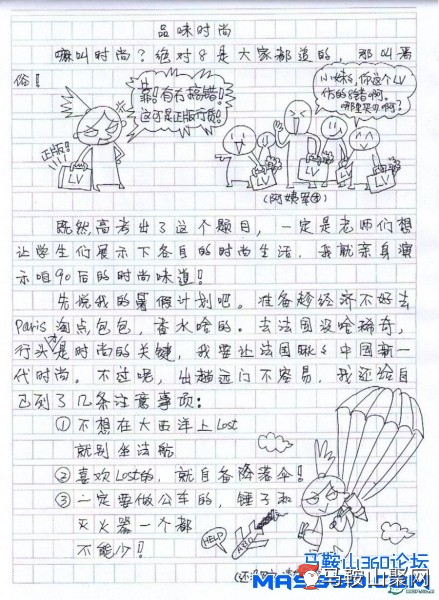 品味时尚
嘛叫时尚？绝对8是大家都追的，那叫焉
俗！
靠！有冇搞错！
这可是正版行货！
正版！
LV
小妹，你这个LV
仿的8错啊。
哪里买的啊？
LV
LV
LV
LV
(阿姨军团)
既然高考出了这个题目，一定是老师们想
让学生们展示下各自的时尚生活，我就亲身演
示咱90后的时尚味道！
先说我的暑假计划吧。准备趁经济不好去
Paris淘点包包，香水啥的。去法国没啥稀奇，
行头才是时尚的关键，我要让法国瞅瞅中国新一
代时尚。不过呢，出趟远门不容易，我还给自
己列了几条注意事项：
①不想在大西洋上Lost
就别坐法航
②喜欢Lost的，就自备降落伞！
③一定要做公车的，锤子和
灭火器一个都
不能少！
HELP
A330
马鞍山360论坛
马鞍山聚网
MAS360.COM